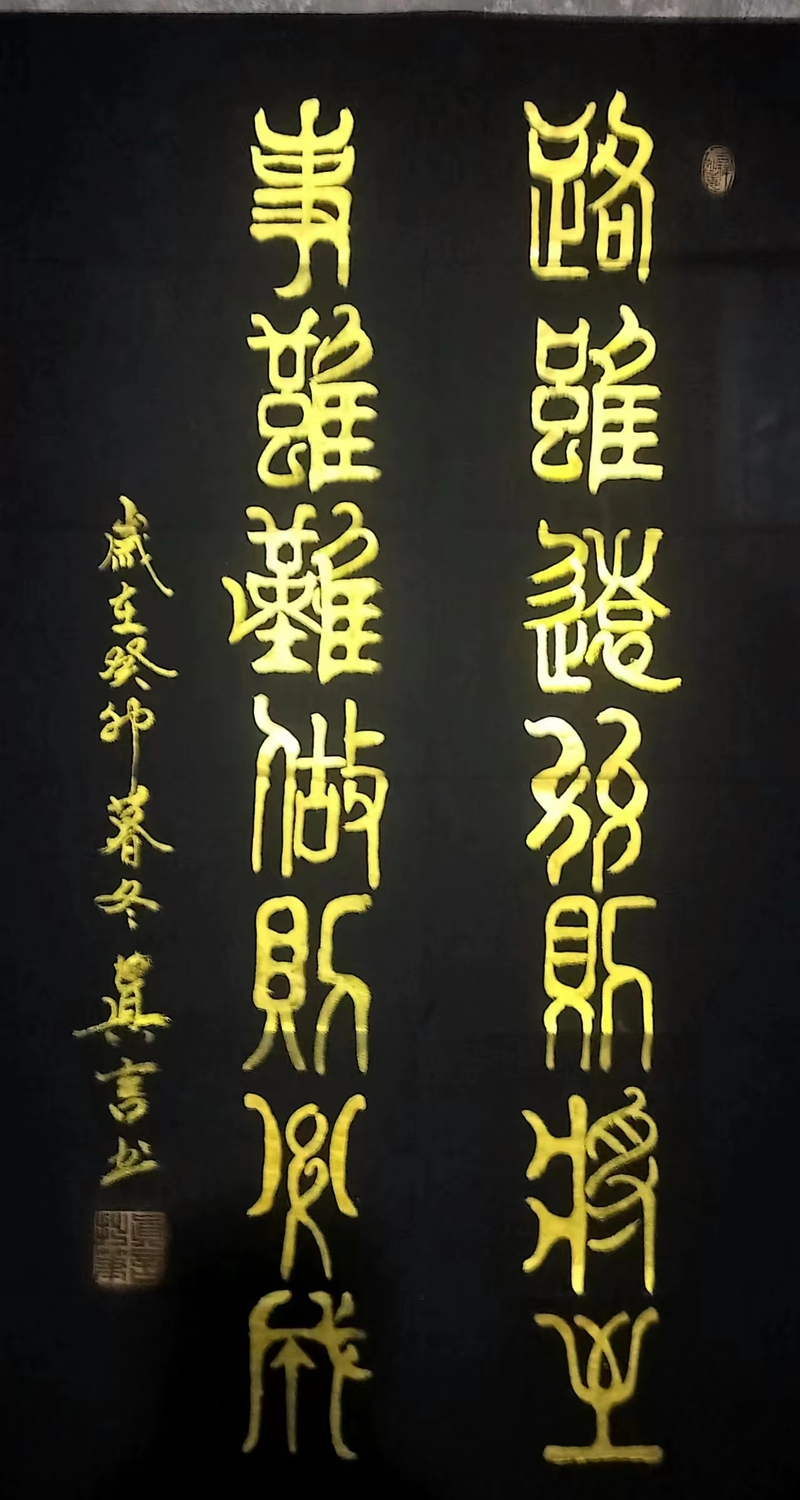 路雖遠行則將至
事雖難做則必成
歲在癸卯暮冬真言书